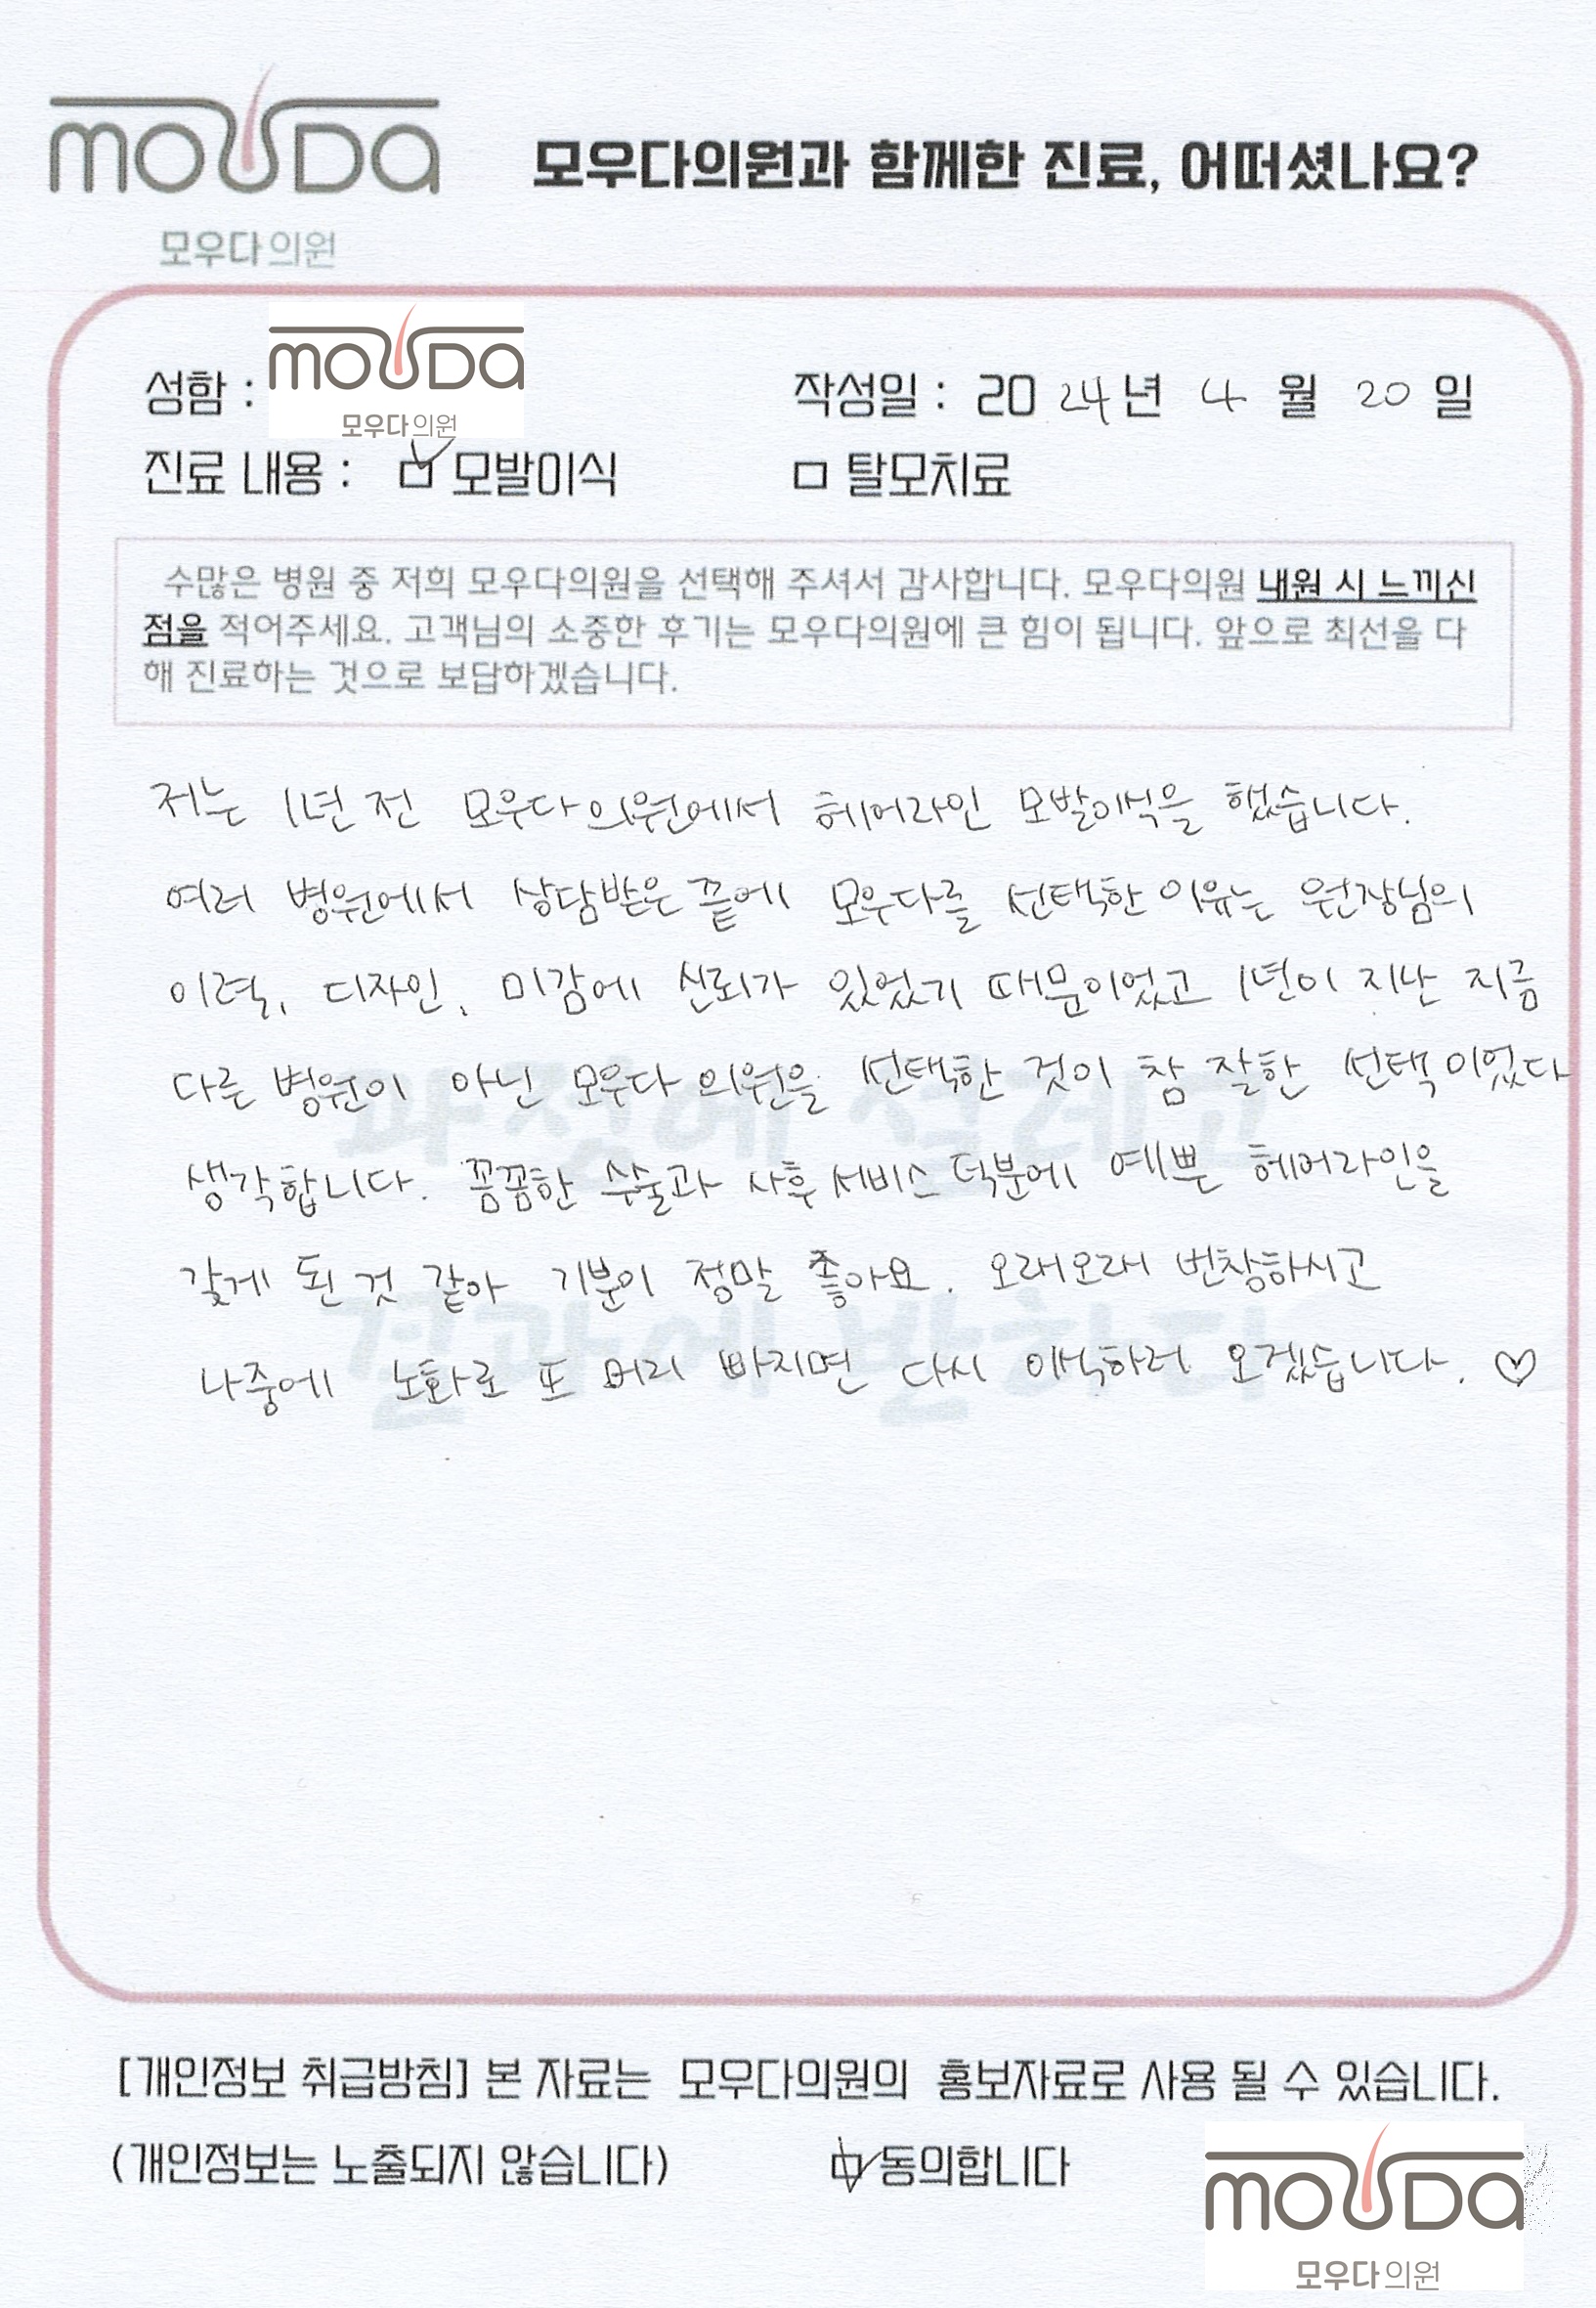 moUDa
모우다의원과 함께한 진료, 어떠셨나요?
모우다의원
성함 : moUDa
모우다의원
작성일 : 2024년 4월 20일
진료 내용 : ☑ 모발이식 □ 탈모치료
수많은 병원 중 저희 모우다의원을 선택해 주셔서 감사합니다. 모우다의원 내원 시 느끼신
점을 적어주세요. 고객님의 소중한 후기는 모우다의원에 큰 힘이 됩니다. 앞으로 최선을 다
해 진료하는 것으로 보답하겠습니다.
저는 1년 전 모우다의원에서 헤어라인 모발이식을 했습니다.
여러 병원에서 상담받은 끝에 모우다를 선택한 이유는 원장님의
이력, 디자인, 미감에 신뢰가 있었기 때문이었고 1년이 지난 지금
다른 병원이 아닌 모우다 의원을 선택한 것이 참 잘한 선택이었다
생각합니다. 꼼꼼한 수술과 사후 서비스 덕분에 예쁜 헤어라인을
갖게 된 것 같아 기분이 정말 좋아요. 오래오래 번창하시고
나중에 노화로 또 머리 빠지면 다시 이식하러 오겠습니다. ♡
과정에 설레고
결과에 반하다
[개인정보 취급방침] 본 자료는 모우다의원의 홍보자료로 사용 될 수 있습니다.
(개인정보는 노출되지 않습니다) ☑ 동의합니다
moUDa
모우다의원